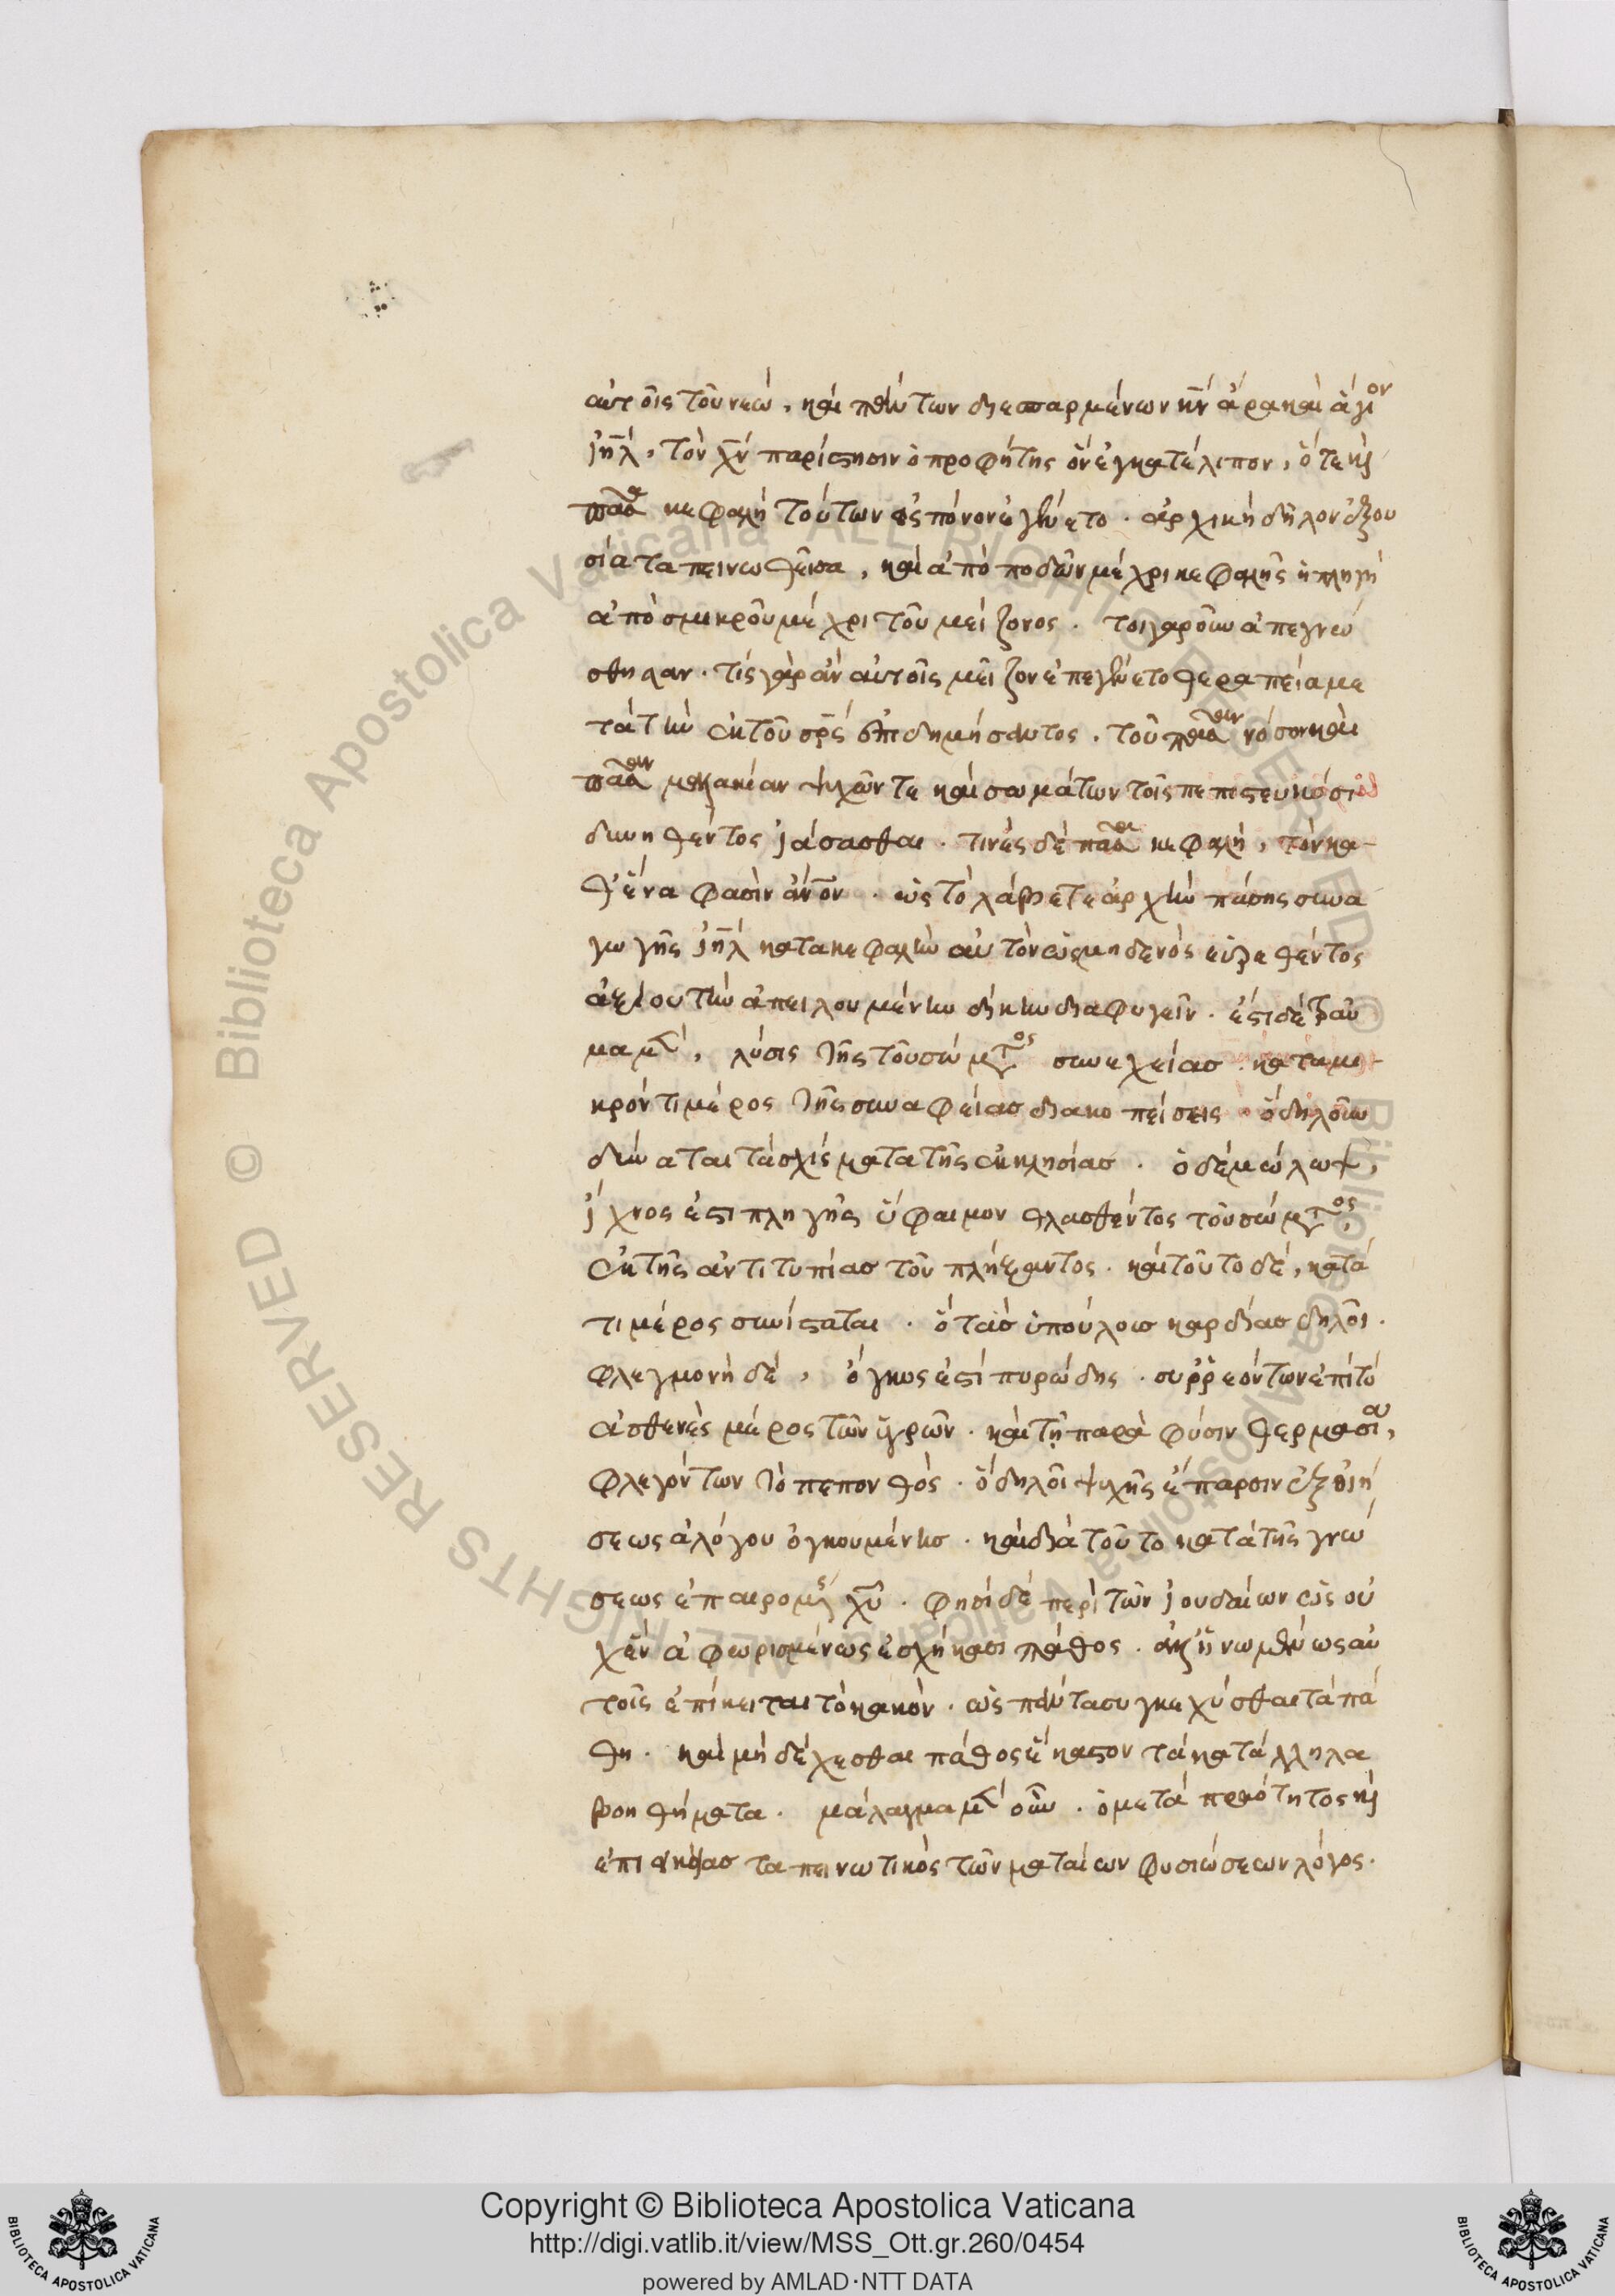 αὐτοῖς τοῦ νεώ, καὶ πάντων διεσπαρμένων κν ἄρα καὶ ἅγιον
ἰηλ, τὸν χν παρίστησιν ὁ προφήτης ὃν ἐγκατέλιπον, ὅτε καὶ
πᾶσα κεφαλὴ τούτων εἰς πόνον ἐγένετο. ἀρχικὴ δῆλον ἐξου
σία ταπεινωθεῖσα, καὶ ἀπὸ ποδῶν μέχρι κεφαλῆς ἡ πληγὴ
ἀπὸ σμικροῦ μέχρι τοῦ μείζονος. τοιγαροῦν ἀπεγνώ
σθησαν. τίς γὰρ ἂν αὐτοῖς μεῖζον ἐπεγένετο θεραπεία με
τὰ τὴν ἐκ τοῦ πρς ἐπιδημήσαντος. τοῦ πᾶσαν νόσον καὶ
πᾶσαν μαλακίαν ψυχῶν τε καὶ σωμάτων τοῖς πεπιστευκόσι
δυνηθέντος ἰάσασθαι. τινὲς δὲ πᾶσα κεφαλὴ, τὸν κα-
θ' ἕνα φασὶν ἀνον. ὡς τὸ λάβετε ἀρχὴν πάσης συνα
γωγῆς ἰηλ κατὰ κεφαλὴν αὐτῶν ὡς μηδενὸς εὑρεθέντος
ἀξίου τὴν ἀπειλουμένην δίκην διαφυγεῖν. ἔστι δὲ τραῦ
μα μὲν, λύσις τῆς τοῦ σώματος συνεχείας. κατὰ μι-
κρόν τι μέρος τῆς συναφείας διακοπείσης. ὃ δηλοῦν
δύναται τὰ σχίσματα τῆς ἐκκλησίας. ὁ δὲ μώλωψ,
ἴχνος ἐστὶ πληγῆς ὕφαιμον θλασθέντος τοῦ σώματος,
ἐκ τῆς ἀντιτυπίας τοῦ πλήξαντος. καὶ τοῦτο δὲ, κατὰ
τι μέρος συνίσταται. ὃ τὰς ὑπούλους καρδίας δηλοῖ.
φλεγμονὴ δὲ, ὄγκος ἐστὶ πυρώδης. συρρεόντων ἐπὶ τὸ
ἀσθενὲς μέρος τῶν ὑγρῶν. καὶ τῇ παρὰ φύσιν θερμασίᾳ,
φλεγόντων τὸ πεπονθός. ὃ δηλοῖ ψυχῆς ἔπαρσιν ἐξ οἰή
σεως ἀλόγου ὀγκουμένης. καὶ διὰ τοῦτο κατὰ τῆς γνώ
σεως ἐπαιρομένης χυ. φησὶ δὲ περὶ τῶν ἰουδαίων ὡς οὐ
χ ἓν ἀφωρισμένως ἐσχήκασι πάθος. ἀλλ' ἡνωμένως αὐ
τοῖς ἐπίκειται τὸ κακὸν. ὡς πάντα συγκεχύσθαι τὰ πά
θη. καὶ μὴ δέχεσθαι πάθος ἕκαστον τὰ κατάλληλα
βοηθήματα. μάλαγμα μὲν οὖν. ὁ μετὰ πραότητος καὶ
ἐπιεικείας ταπεινωτικὸς τῶν ματαίων φυσιώσεων λόγος.
Copyright © Biblioteca Apostolica Vaticana
http://digi.vatlib.it/view/MSS_Ott.gr.260/0454
powered by AMLAD·NTT DATA